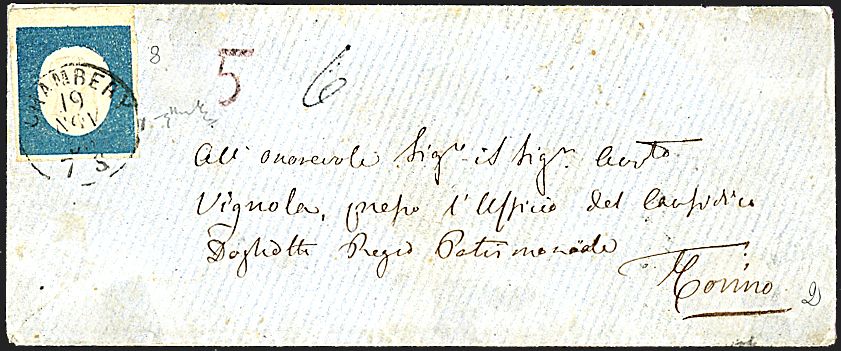 8
5 6
CHAMBERY
19
NOV
7 S
All' onorevole Sigr. il Sigr.
Vignola, presso l'Ufficio del Causidico
Regio Patrimoniale
Torino
2